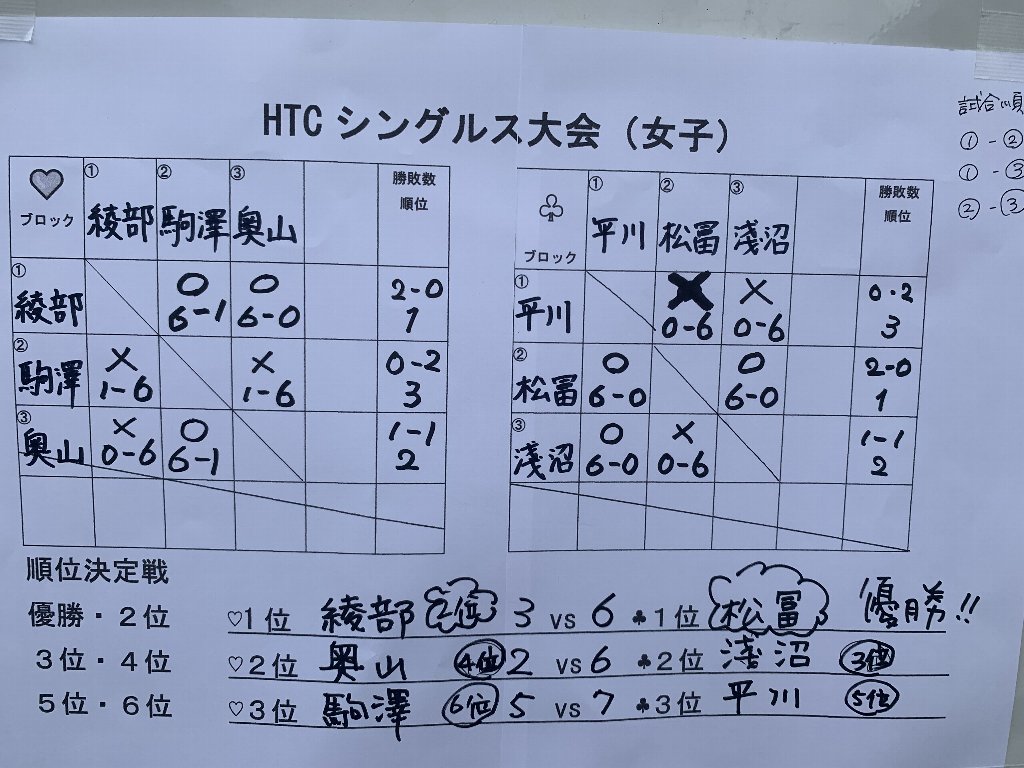 HTC シングルス大会（女子）
試合順
①-②
①-③
②-③
ブロック ①綾部 ②駒澤 ③奥山 勝敗数 順位
①綾部 ○ 6-1 ○ 6-0 2-0 1
②駒澤 × 1-6 × 1-6 0-2 3
③奥山 × 0-6 ○ 6-1 1-1 2
ブロック ①平川 ②松冨 ③淺沼 勝敗数 順位
①平川 × 0-6 × 0-6 0-2 3
②松冨 ○ 6-0 ○ 6-0 2-0 1
③淺沼 ○ 6-0 × 0-6 1-1 2
順位決定戦
優勝・2位 ♡1位 綾部 2位 3 vs 6 ♣1位 松冨 優勝!!
3位・4位 ♡2位 奥山 4位 2 vs 6 ♣2位 淺沼 3位
5位・6位 ♡3位 駒澤 6位 5 vs 7 ♣3位 平川 5位